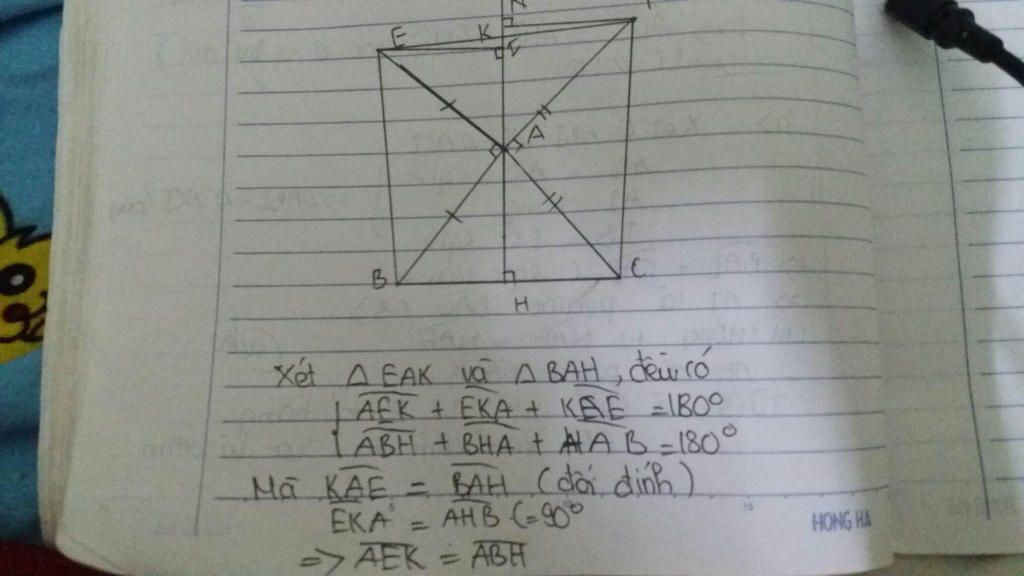 E K
F
A
B C
H
Xét △ EAK và △ BAH, đều có
AEK + EKA + KAE = 180°
ABH + BHA + HAB = 180°
Mà KAE = BAH (đối đỉnh)
EKA = AHB (= 90°
=> AEK = ABH
HONG HA